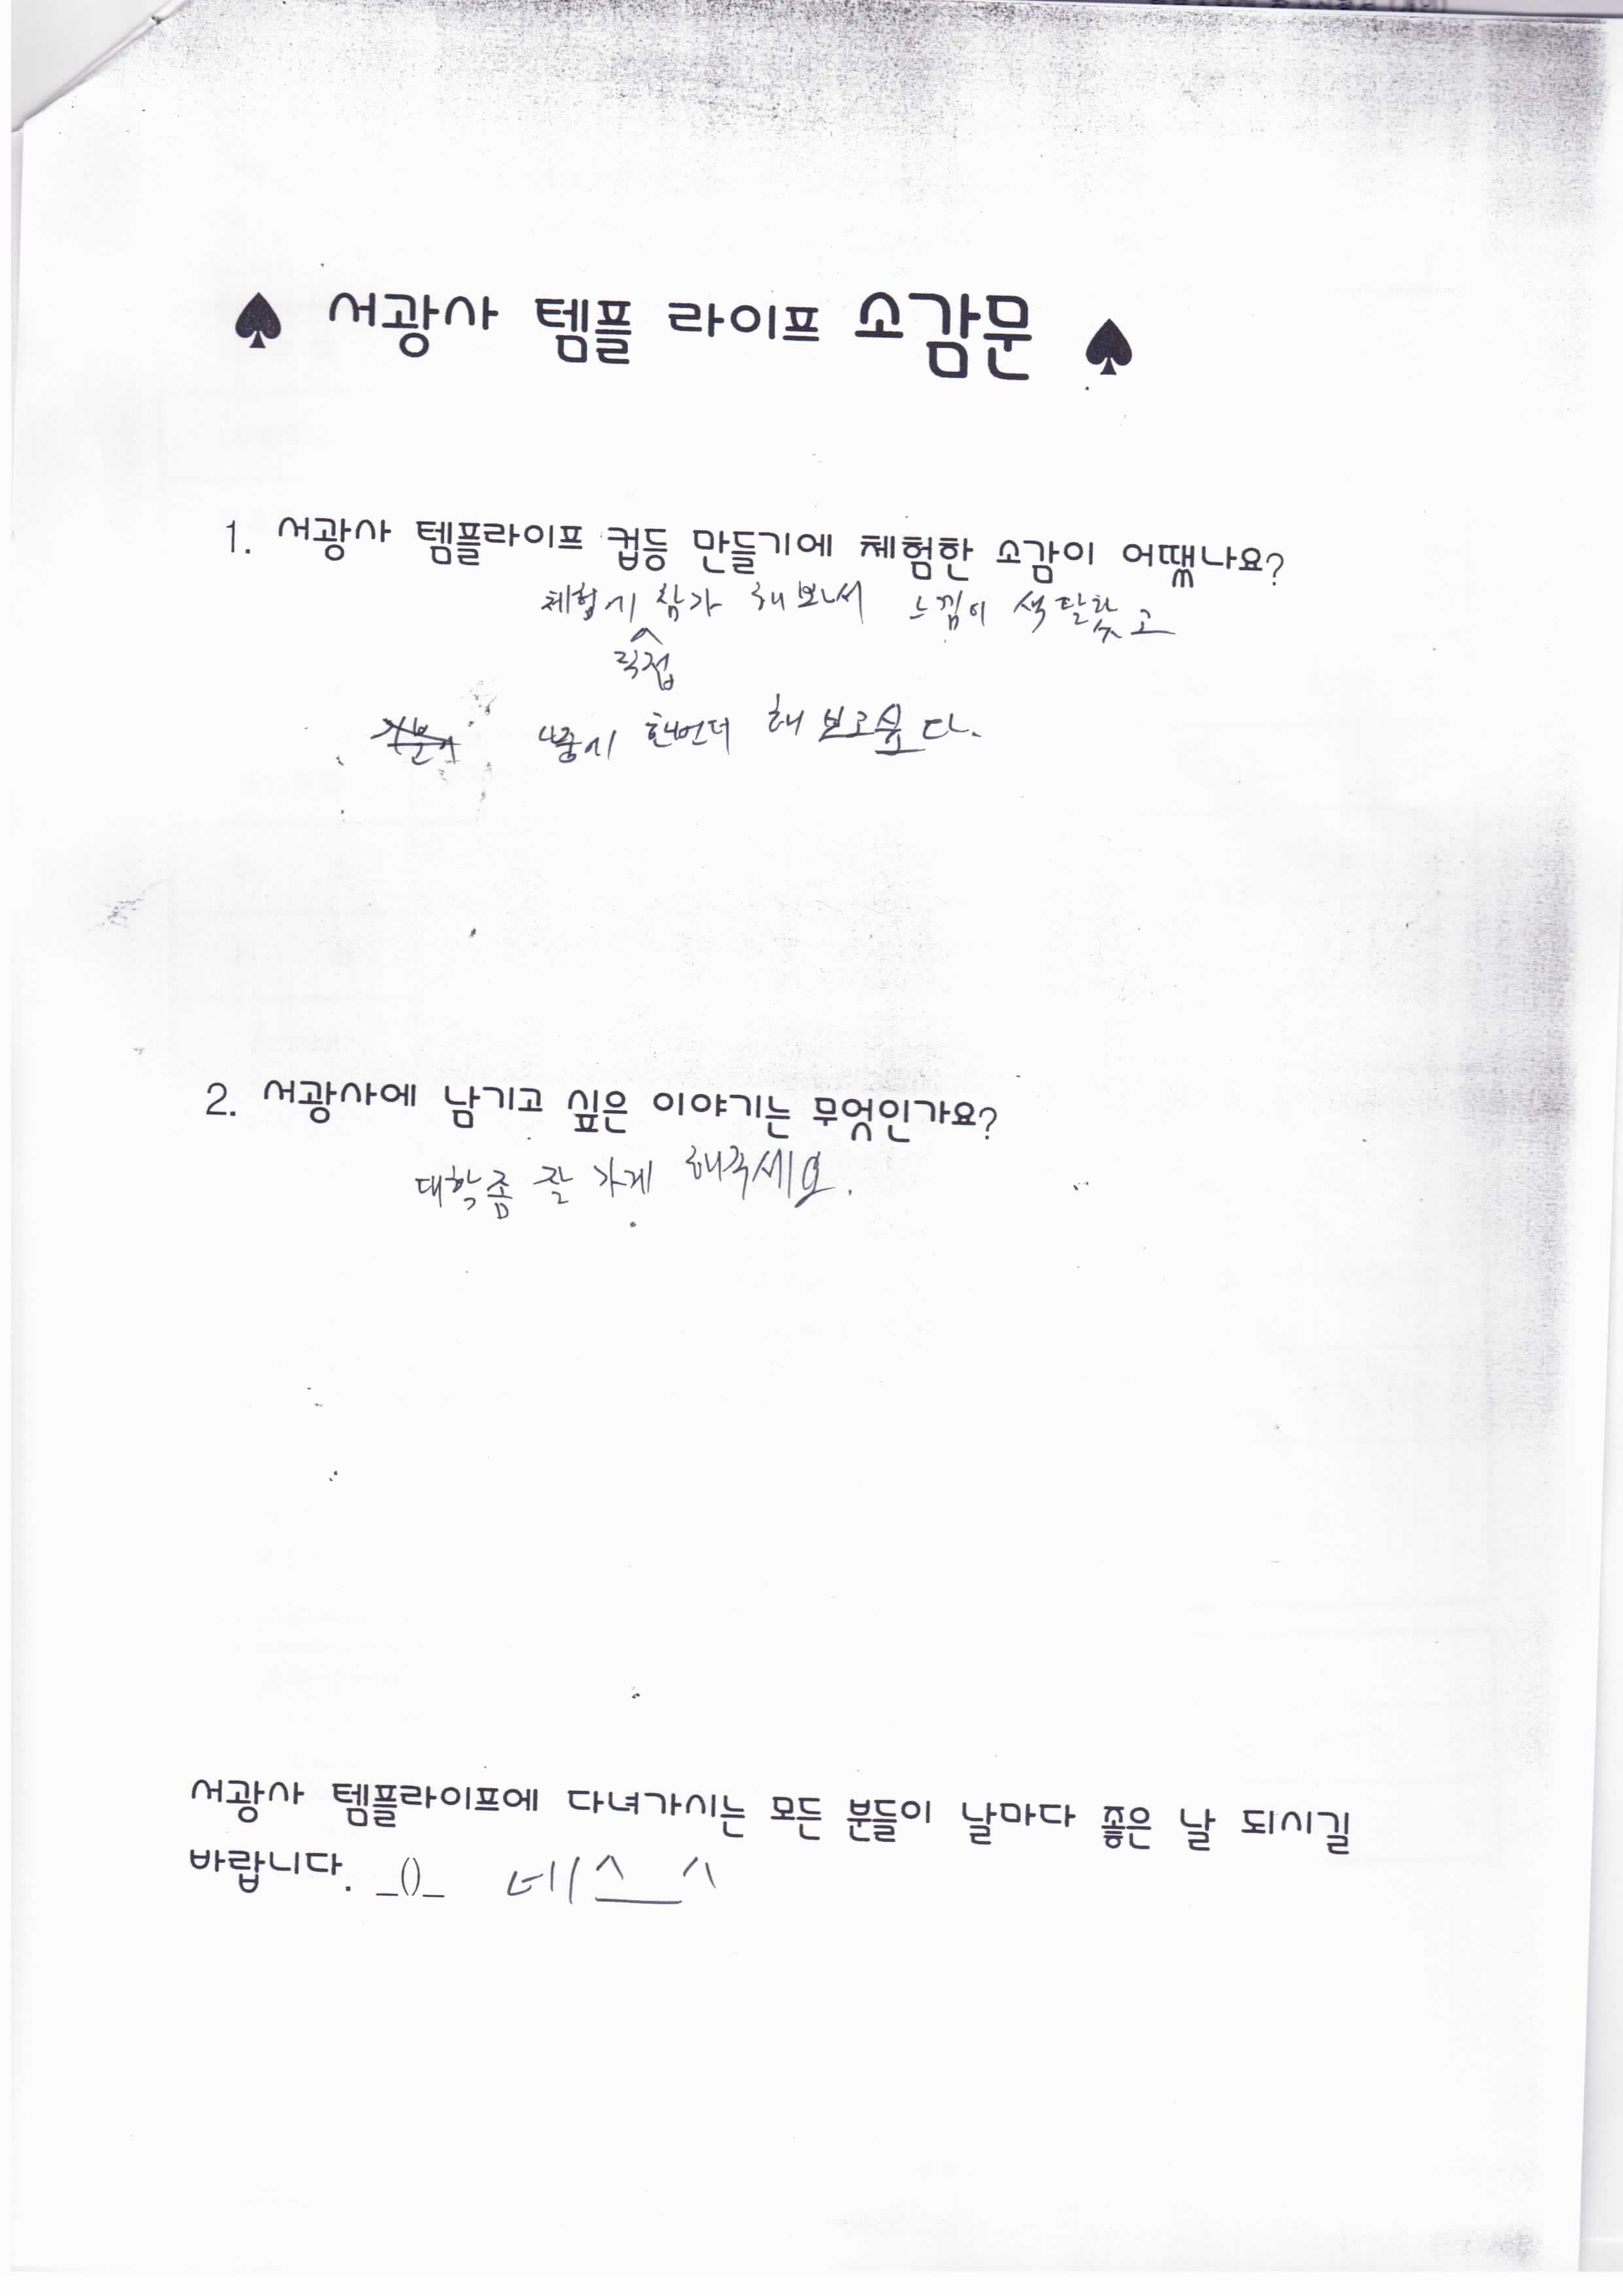 ♠ 서광사 템플 라이프 소감문 ♠
1. 서광사 템플라이프 컵등 만들기에 체험한 소감이 어땠나요?
체험시 직접 참가 해보니서 느낌이 색달랐고
나중시 한번더 해보고싶다.
2. 서광사에 남기고 싶은 이야기는 무엇인가요?
대학좀 잘 가게 해주세요.
서광사 템플라이프에 다녀가시는 모든 분들이 날마다 좋은 날 되시길
바랍니다. _()_ 네 ^__^